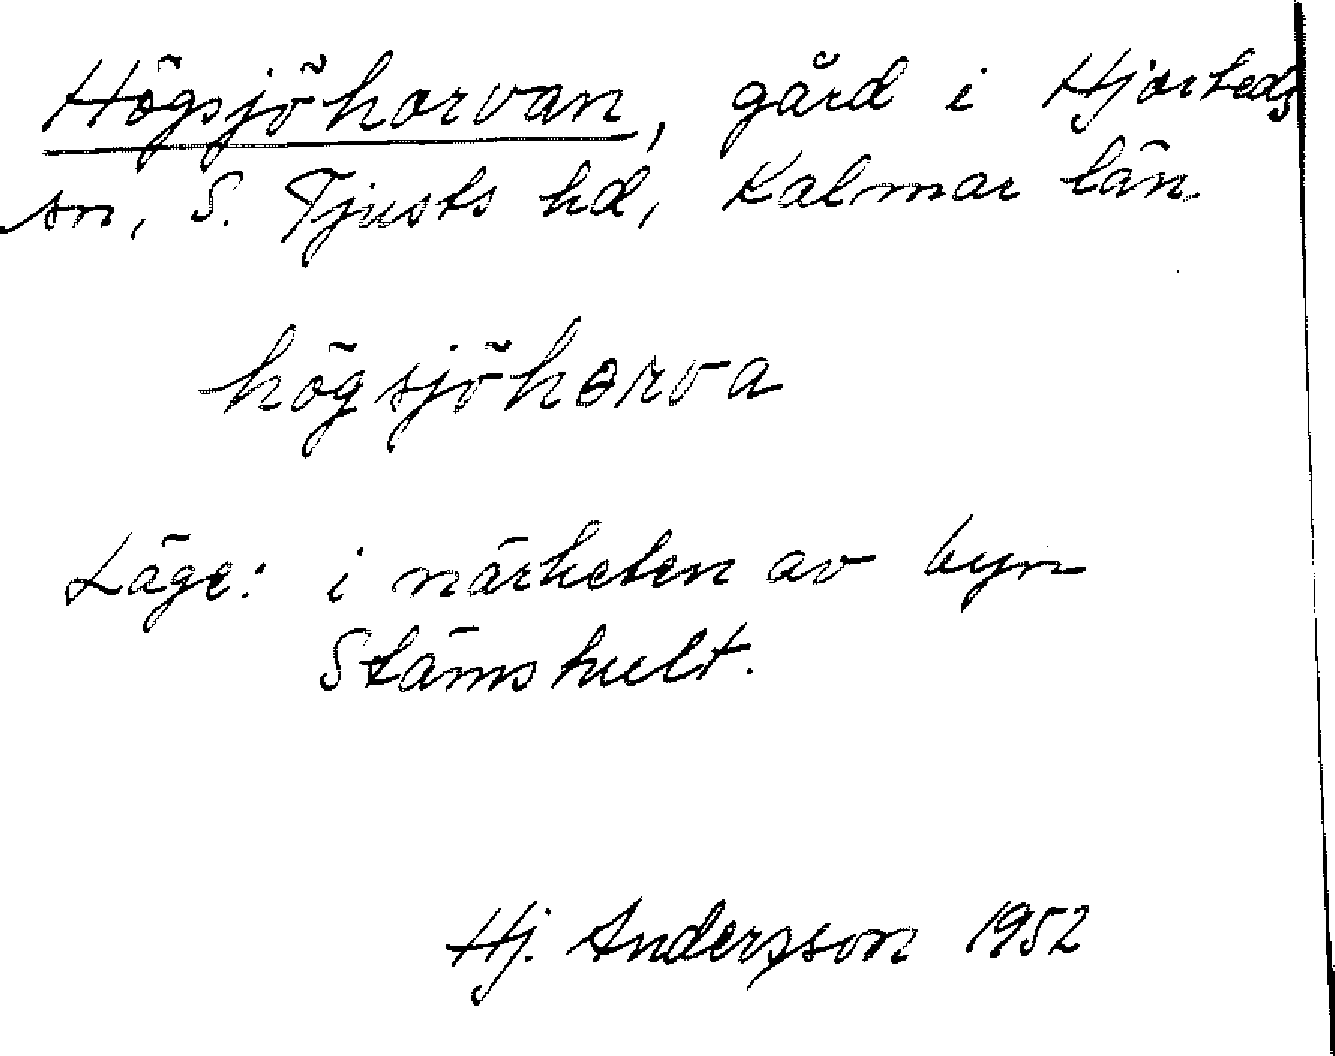 Högsjöhorvan, gård i Hjorteds
sn, S. Tjusts hd, Kalmar län
högsjöhorva
Läge: i närheten av byn
Stämshult.
Hj. Andersson 1952